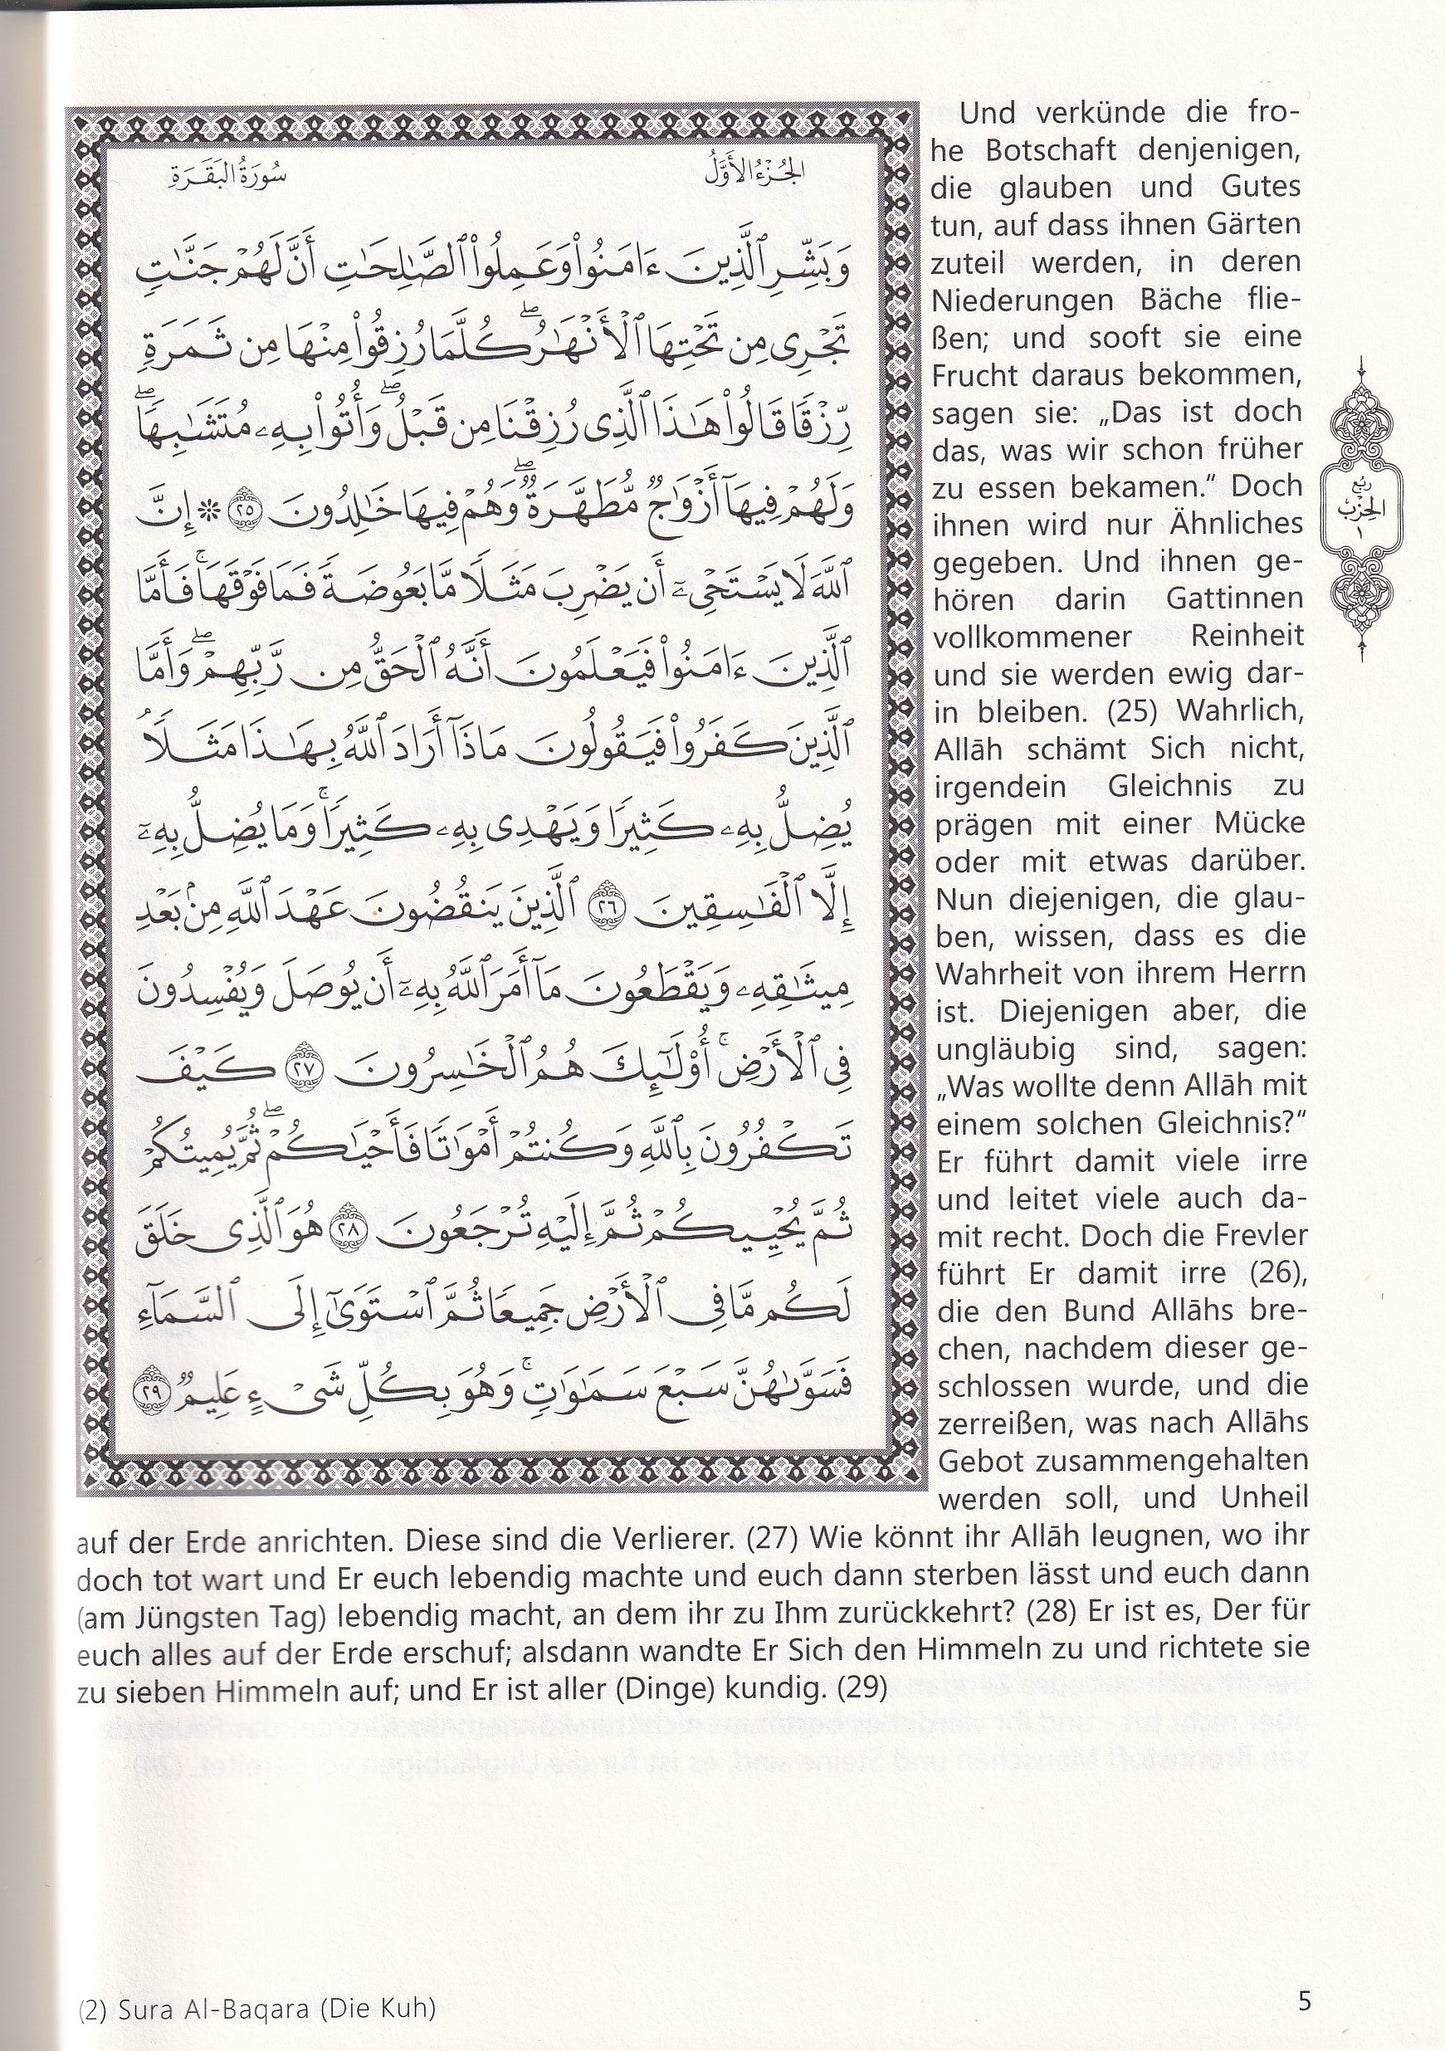 سُورَةُ البَقَرَةِ
الجُزْءُ الأَوَّلُ
وَبَشِّرِ ٱلَّذِينَ ءَامَنُوا۟ وَعَمِلُوا۟ ٱلصَّٰلِحَٰتِ أَنَّ لَهُمْ جَنَّٰتٍ
تَجْرِى مِن تَحْتِهَا ٱلْأَنْهَٰرُ ۖ كُلَّمَا رُزِقُوا۟ مِنْهَا مِن ثَمَرَةٍ
رِّزْقًا قَالُوا۟ هَٰذَا ٱلَّذِى رُزِقْنَا مِن قَبْلُ ۖ وَأُتُوا۟ بِهِۦ مُتَشَٰبِهًا ۖ
وَلَهُمْ فِيهَآ أَزْوَٰجٌ مُّطَهَّرَةٌ ۖ وَهُمْ فِيهَا خَٰلِدُونَ ٢٥ ۞ إِنَّ
ٱللَّهَ لَا يَسْتَحْىِۦٓ أَن يَضْرِبَ مَثَلًا مَّا بَعُوضَةً فَمَا فَوْقَهَا ۚ فَأَمَّا
ٱلَّذِينَ ءَامَنُوا۟ فَيَعْلَمُونَ أَنَّهُ ٱلْحَقُّ مِن رَّبِّهِمْ ۖ وَأَمَّا
ٱلَّذِينَ كَفَرُوا۟ فَيَقُولُونَ مَاذَآ أَرَادَ ٱللَّهُ بِهَٰذَا مَثَلًا ۘ
يُضِلُّ بِهِۦ كَثِيرًا وَيَهْدِى بِهِۦ كَثِيرًا ۚ وَمَا يُضِلُّ بِهِۦٓ
إِلَّا ٱلْفَٰسِقِينَ ٢٦ ٱلَّذِينَ يَنقُضُونَ عَهْدَ ٱللَّهِ مِنۢ بَعْدِ
مِيثَٰقِهِۦ وَيَقْطَعُونَ مَآ أَمَرَ ٱللَّهُ بِهِۦٓ أَن يُوصَلَ وَيُفْسِدُونَ
فِى ٱلْأَرْضِ ۚ أُو۟لَٰٓئِكَ هُمُ ٱلْخَٰسِرُونَ ٢٧ كَيْفَ
تَكْفُرُونَ بِٱللَّهِ وَكُنتُمْ أَمْوَٰتًا فَأَحْيَٰكُمْ ۖ ثُمَّ يُمِيتُكُمْ
ثُمَّ يُحْيِيكُمْ ثُمَّ إِلَيْهِ تُرْجَعُونَ ٢٨ هُوَ ٱلَّذِى خَلَقَ
لَكُم مَّا فِى ٱلْأَرْضِ جَمِيعًا ثُمَّ ٱسْتَوَىٰٓ إِلَى ٱلسَّمَآءِ
فَسَوَّىٰهُنَّ سَبْعَ سَمَٰوَٰتٍ ۚ وَهُوَ بِكُلِّ شَىْءٍ عَلِيمٌ ٢٩
Und verkünde die fro-
he Botschaft denjenigen,
die glauben und Gutes
tun, auf dass ihnen Gärten
zuteil werden, in deren
Niederungen Bäche flie-
ßen; und sooft sie eine
Frucht daraus bekommen,
sagen sie: „Das ist doch
das, was wir schon früher
zu essen bekamen.“ Doch
ihnen wird nur Ähnliches
gegeben. Und ihnen ge-
hören darin Gattinnen
vollkommener Reinheit
und sie werden ewig dar-
in bleiben. (25) Wahrlich,
Allāh schämt Sich nicht,
irgendein Gleichnis zu
prägen mit einer Mücke
oder mit etwas darüber.
Nun diejenigen, die glau-
ben, wissen, dass es die
Wahrheit von ihrem Herrn
ist. Diejenigen aber, die
ungläubig sind, sagen:
„Was wollte denn Allāh mit
einem solchen Gleichnis?“
Er führt damit viele irre
und leitet viele auch da-
mit recht. Doch die Frevler
führt Er damit irre (26),
die den Bund Allāhs bre-
chen, nachdem dieser ge-
schlossen wurde, und die
zerreißen, was nach Allāhs
Gebot zusammengehalten
werden soll, und Unheil
auf der Erde anrichten. Diese sind die Verlierer. (27) Wie könnt ihr Allāh leugnen, wo ihr
doch tot wart und Er euch lebendig machte und euch dann sterben lässt und euch dann
(am Jüngsten Tag) lebendig macht, an dem ihr zu Ihm zurückkehrt? (28) Er ist es, Der für
euch alles auf der Erde erschuf; alsdann wandte Er Sich den Himmeln zu und richtete sie
zu sieben Himmeln auf; und Er ist aller (Dinge) kundig. (29)
ربع
الحِزْب
١
(2) Sura Al-Baqara (Die Kuh)
5